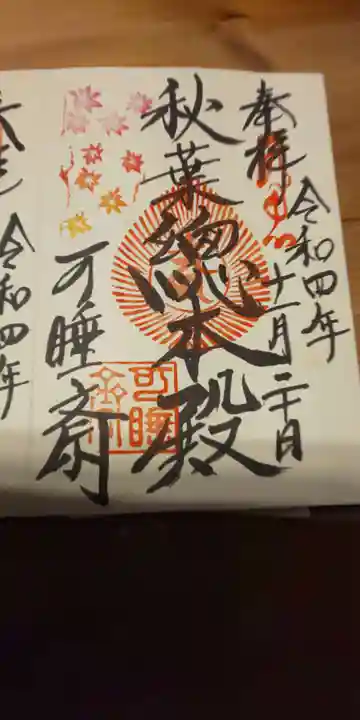 奉拝
令和四年
十一月二十日
秋葉總本殿
可睡斎
可睡
令和四年